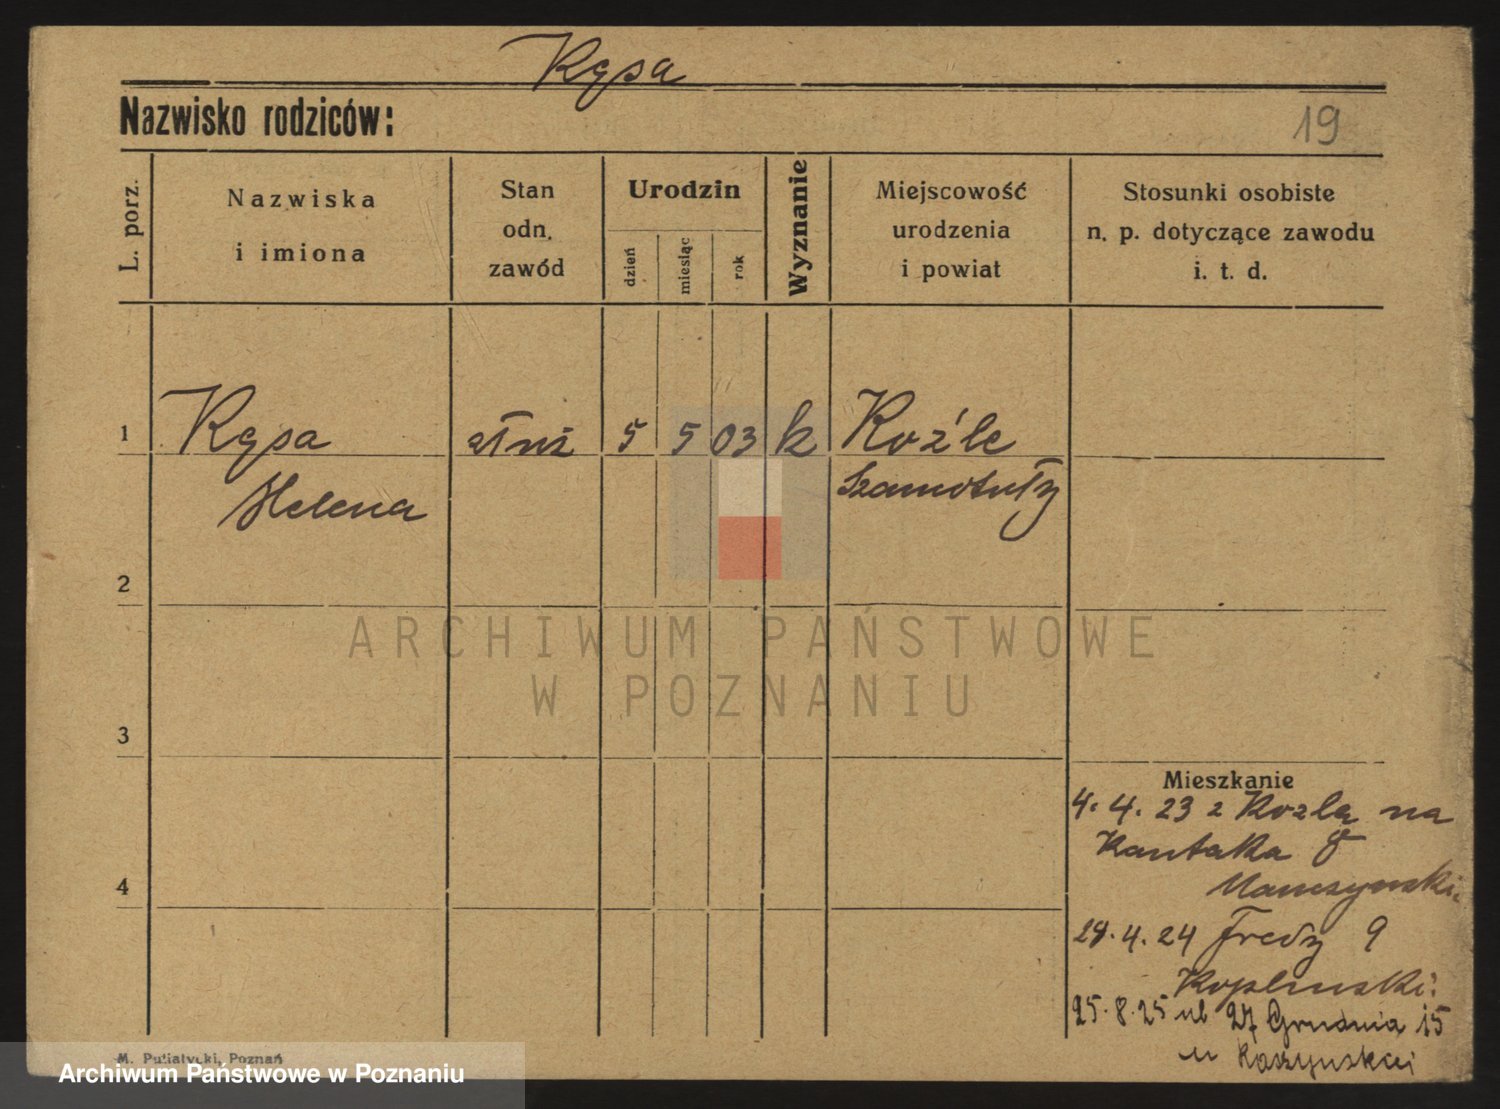 Kępa
Nazwisko rodziców:
19
L. porz.
Nazwiska
i imiona
Stan
odn.
zawód
Urodzin
dzień
miesiąc
rok
Wyznanie
Miejscowość
urodzenia
i powiat
Stosunki osobiste
n. p. dotyczące zawodu
i. t. d.
1
Kępa
Helena
5
5
03
k
Koźle
Szamotuły
2
ARCHIWUM PAŃSTWOWE
W POZNANIU
3
Mieszkanie
4. 4. 23 z Kozla na
Kantaka 8
4
4. 24 Fredry 9
25. 8. 25 ul 27 Grudnia 15
u
M. Putiatycki, Poznań
Archiwum Państwowe w Poznaniu